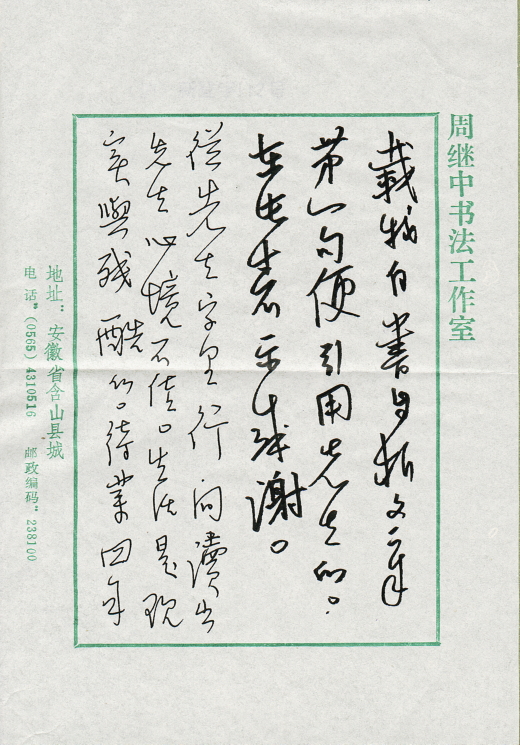 周继中书法工作室
载拙自书
第一句便引用先生的。
在此表示感谢。
从先生字里行间读出
先生心境不佳。生活是现
实与残酷的。待业四年
地址：安徽省含山县城
电话：(0565) 4310516 邮政编码：238100